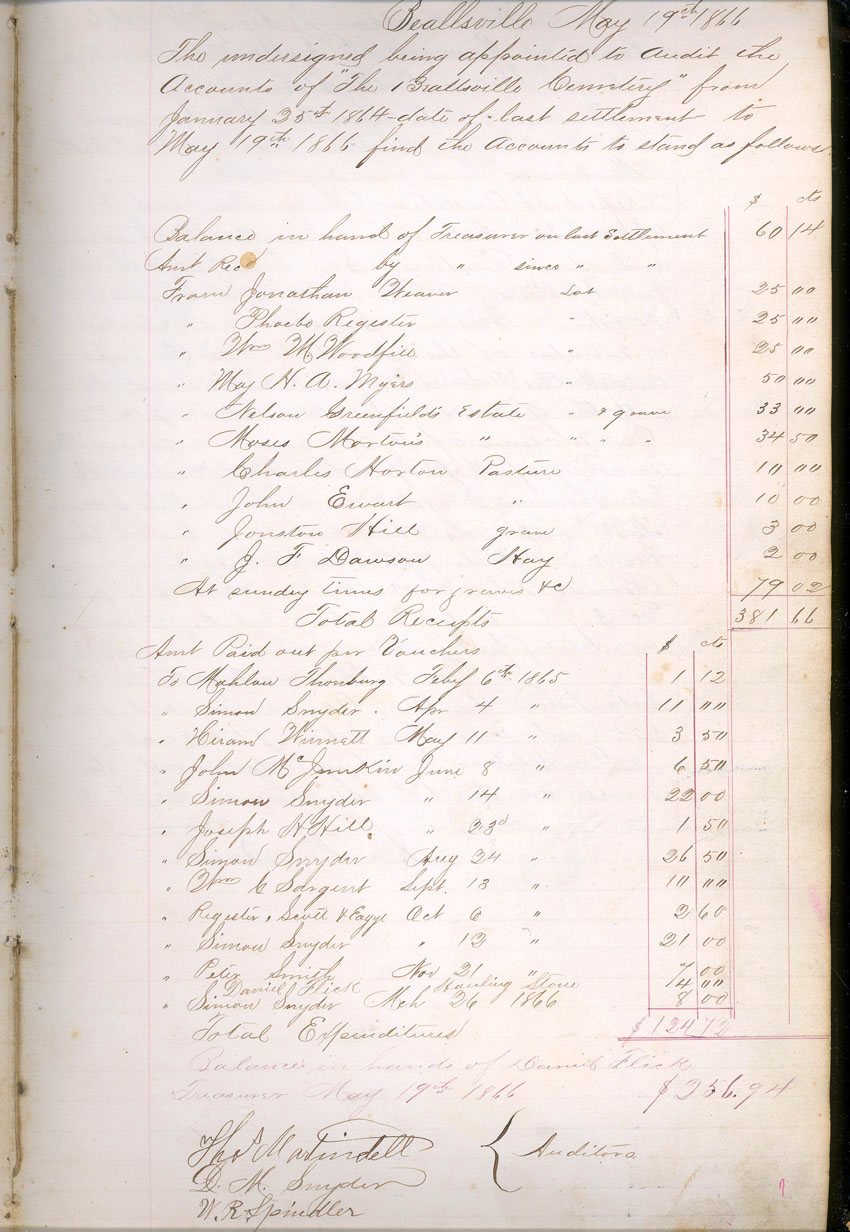 Beallsville May 19th 1866
The undersigned being appointed to Audit the
Accounts of "The Beallsville Cemetery" from
January 25th 1864 - date of last settlement to
May 19th 1866 find the Accounts to stand as follows
$ cts
Balance in hand of Treasurer on last Settlement 60 14
Amt Recd by " since " "
From Jonathan Weaver Lot 25 00
" Phoebe Register " 25 00
" Wm M Woodfill " 25 00
" Maj H. A. Myers " 50 00
" Nelson Greenfield's Estate " & grave 33 00
" Moses Morton's " " " " 34 50
" Charles Horton Pasture 10 00
" John Ewart " 10 00
" Jonston Hill grave 3 00
" J. F. Dawson Hay 2 00
At sunday times for graves &c 79 02
Total Receipts 381 66
Amt Paid out per Vouchers $ cts
To Mahlon Thonburg Feby 6th 1865 1 12
" Simon Snyder. Apr 4 " 11 00
" Hiram Winnett May 11 " 3 50
" John McJunkin June 8 " 6 50
" Simon Snyder " 14 " 22 00
" Joseph H Hill " 23d " 1 50
" Simon Snyder Aug 24 " 26 50
" Wm C Sargent Sept. 13 " 10 00
" Register, Scott & Eagye Oct 6 " 2 60
" Simon Snyder " 12 " 21 00
" Peter Smith Nov 21 " 7 00
Daniel Flick Hauling Stone 4 00
" Simon Snyder Mch 26 1866 8 00
Total Expenditures $ 124 72
Balance in hands of Daniel Flick
Treasurer May 19th 1866 $ 256.94
Thos Martindell
D. M. Snyder Auditors
W. R. Spindler